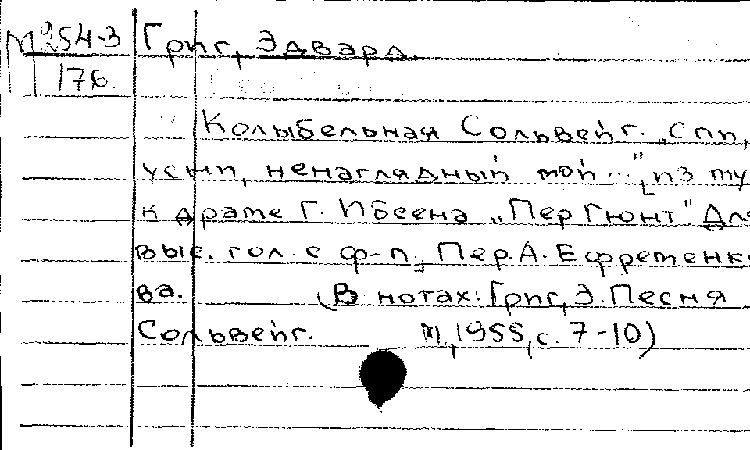 М 254-3 Григ, Эдвард.
176.
Колыбельная Сольвейг. „Спи,
усни, ненаглядный мой...", [из му
к драме Г. Ибсена „Пер Гюнт" Для
выс. гол. с ф-п. Пер. А. Ефременко-
ва. (В нотах: Григ, Э. Песня
Сольвейг. М, 1955, с. 7-10)